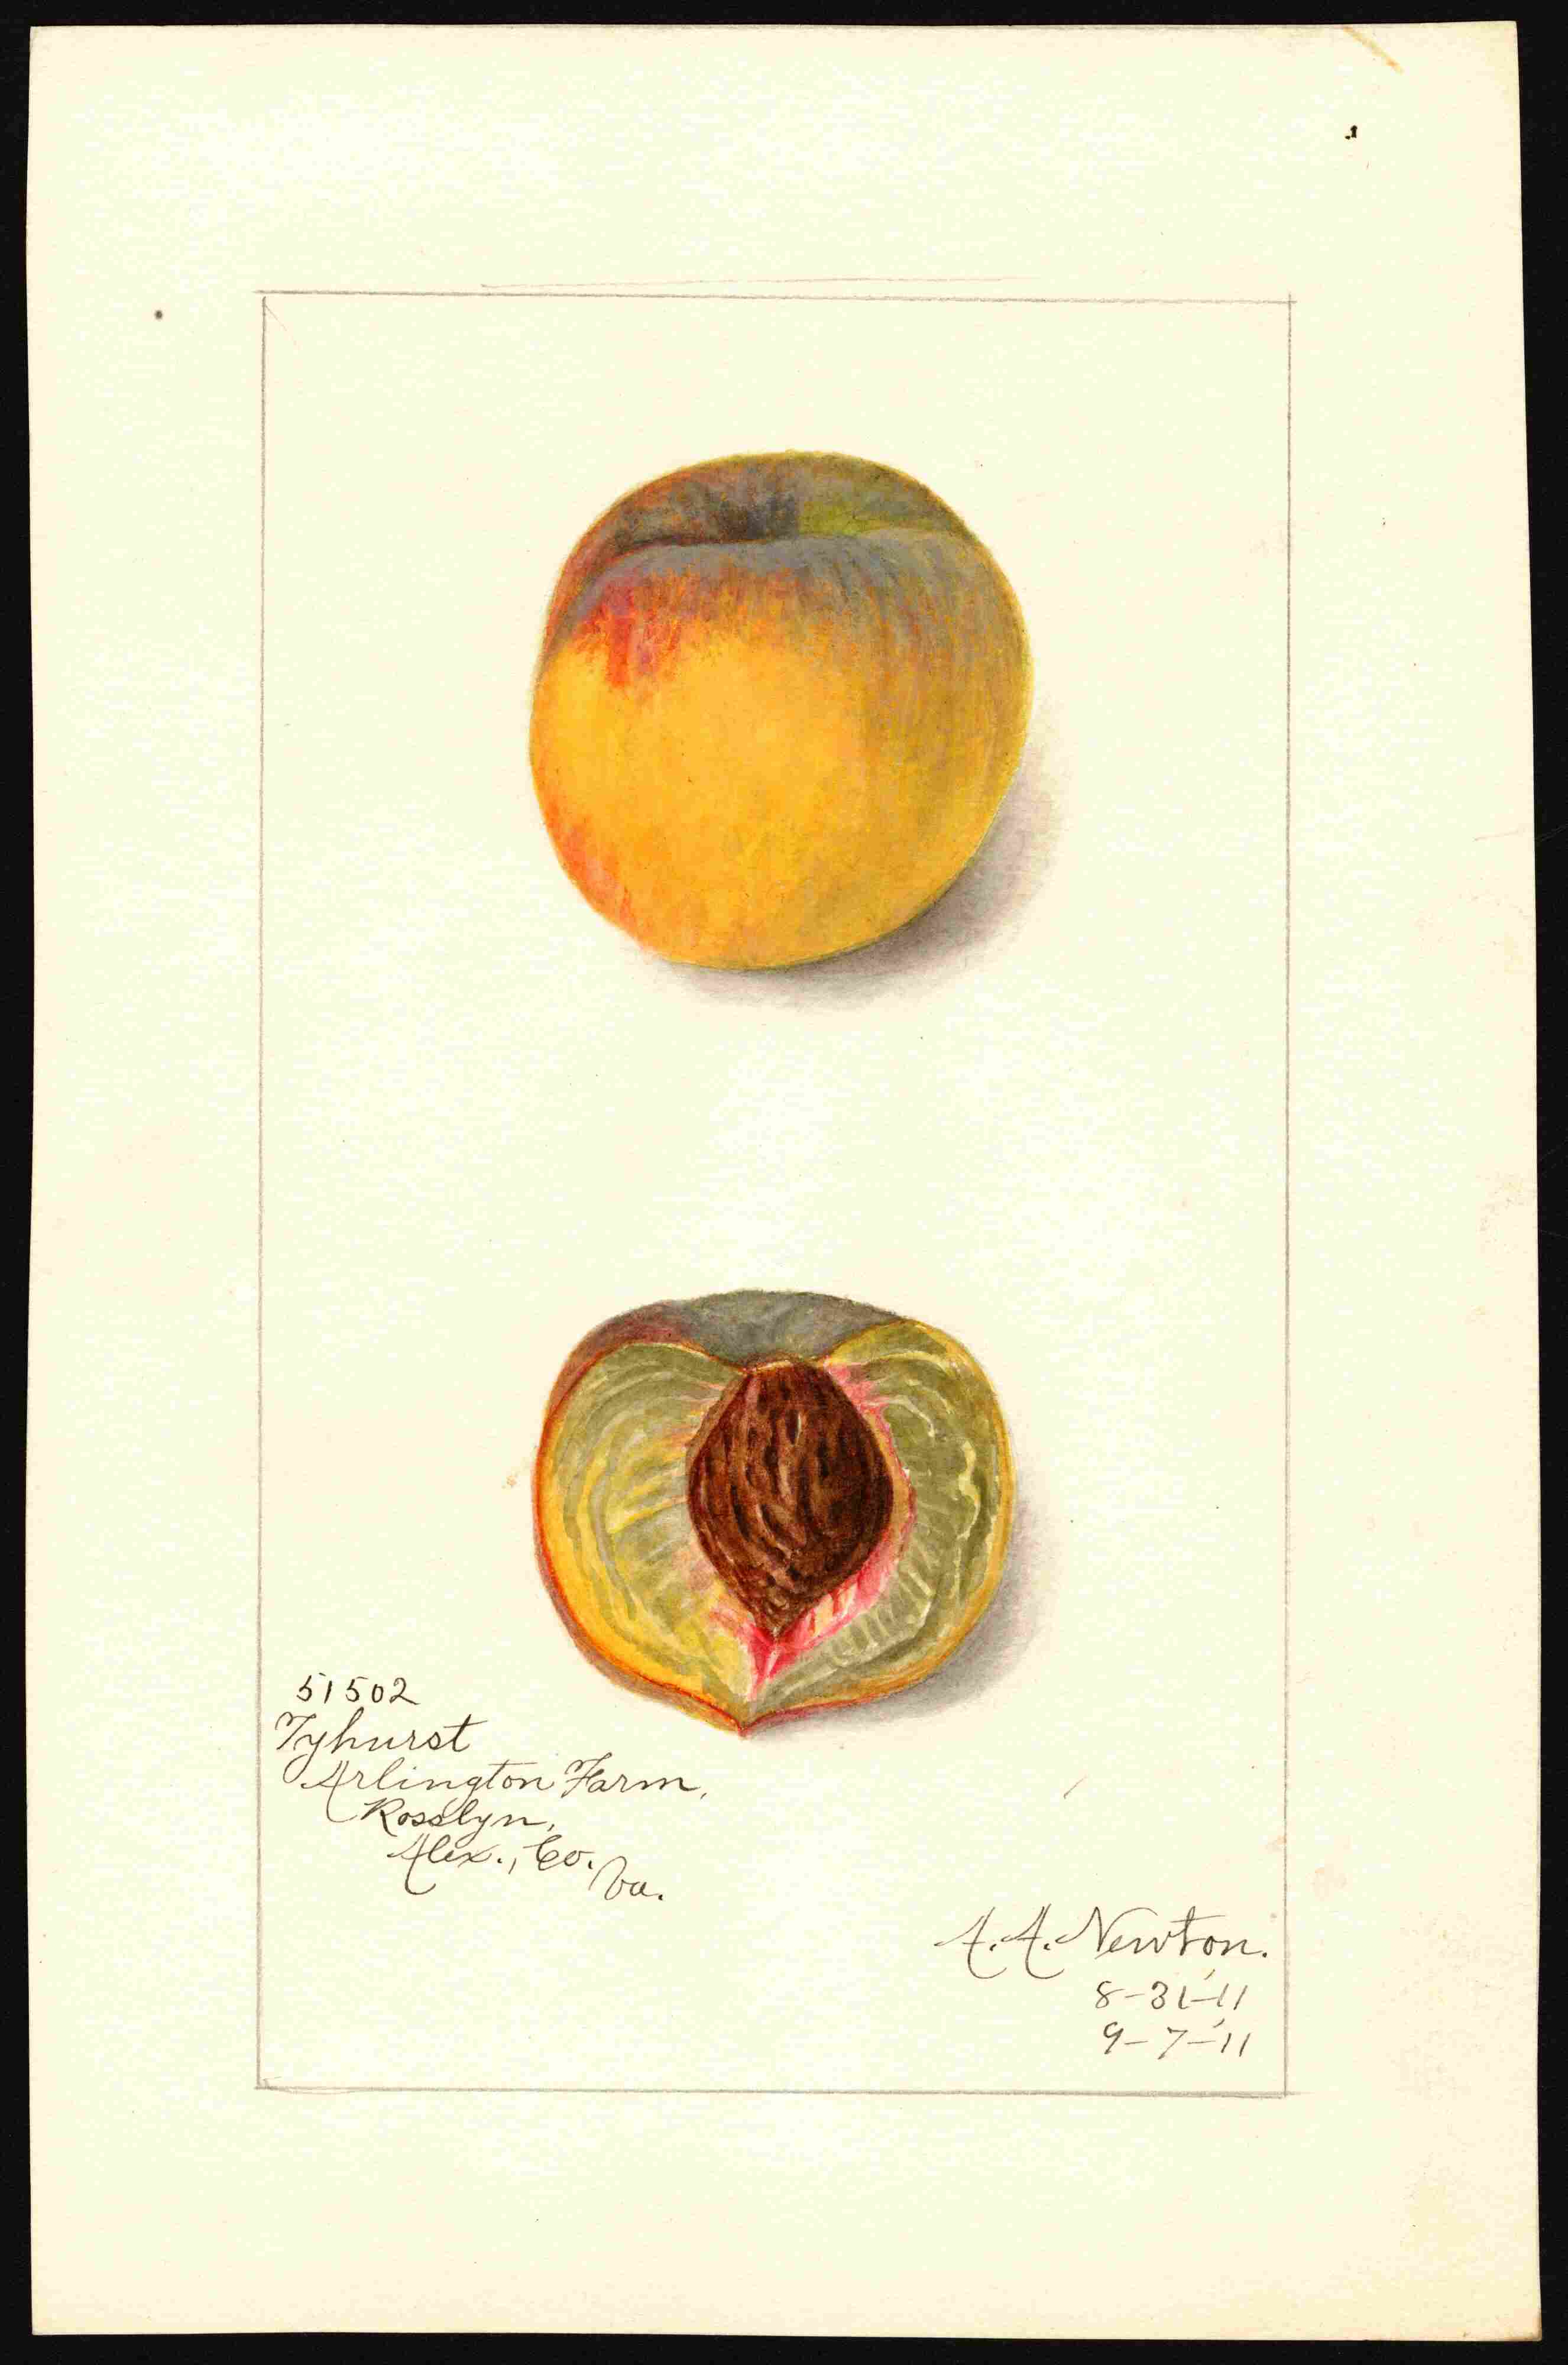 51502
Tyhurst
Arlington Farm,
Rosslyn,
Alex., Co.
Va.
A. A. Newton.
8-31-'11
9-7-'11